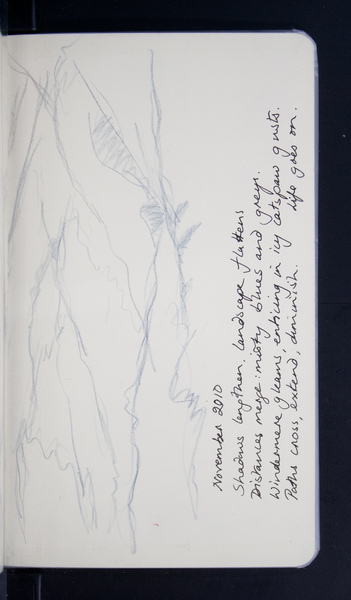 November 2010
Shadows lengthen. Landscape flattens
Distances merge: misty blues and greys.
Windermere gleams, enticing in icy catspaw gusts.
Paths cross, extend, diminish. Life goes on.